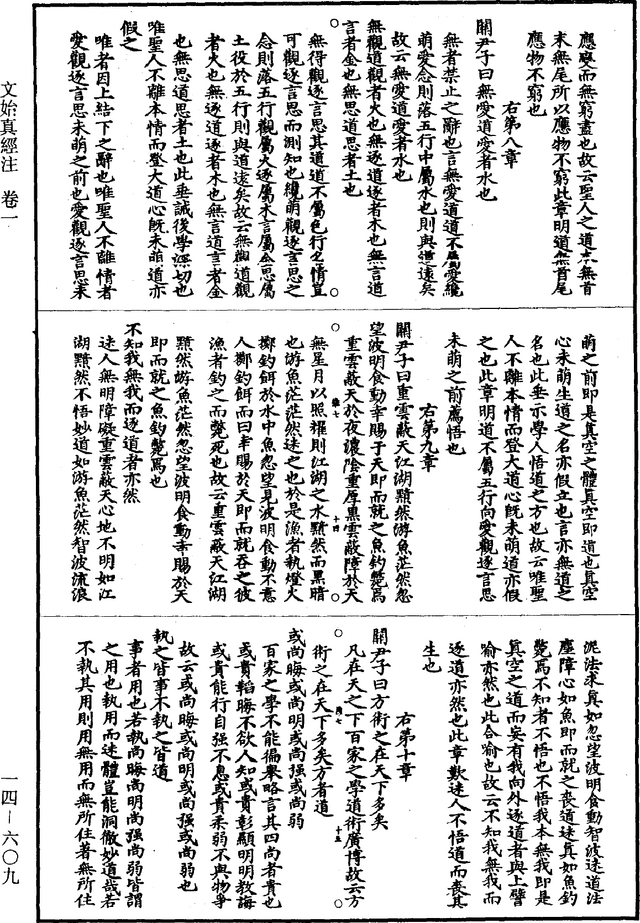 應變而無窮盡也故云聖人之道本無首
末無尾所以應物不窮此章明道無首尾
應物不窮也
右第八章
關尹子曰無愛道愛者水也
無者禁止之辭也言無愛道道不屬愛纔
萌愛念則落五行中屬水也則與道遠矣
故云無愛道愛者水也
無觀道觀者火也無逐道逐者木也無言道
言者金也無思道思者土也
無得觀逐言思其道道不屬色行名情豈
可觀逐言思而測知也纔萌觀逐言思之
念則落五行觀屬火逐屬木言屬金思屬
土役於五行則與道遠矣故云無觀道觀
者火也無逐道逐者木也無言道言者金
也無思道思者土也此垂誠後學深切也
唯聖人不離本情而登大道心既未萌道亦
假之
唯者因上結下之辭也唯聖人不離情者
愛觀逐言思未萌之前也愛觀逐言思未
萌之前即是真空之體真空即道也真空
心未萌生道之名亦假立也言亦無道之
名也此垂示學人悟道之方也故云唯聖
人不離本情而登大道心既未萌道亦假
之也此章明道不屬五行向愛觀逐言思
未萌之前薦悟也
右第九章
關尹子曰重雲蔽天江湖黯然游魚茫然忽
望波明食動幸賜于天即而就之魚釣斃焉
重雲蔽天於夜濃陰重厚黑雲蔽障於天
無星月以照耀則江湖之水黯然而黑暗
也游魚茫茫然迷之也於是漁者執燈火
擲釣餌於水中魚忽望見波明食動不意
人擲釣餌而曰幸賜於天即而就吞之彼
漁者釣之而斃死也故云重雲蔽天江湖
黯然游魚茫然忽望波明食動幸賜於天
即而就之魚釣斃焉也
不知我無我而逐道者亦然
迷人無明障礙重雲蔽天心地不明如江
湖黯然不悟妙道如游魚茫然智波流浪
泥法求真如忽望波明食動智波迷道法
塵障心如魚即而就之喪道迷真如魚釣
斃焉不知者不悟也不悟我本無我即是
真空之道而妄有我向外逐道者與上譬
喻亦然也此合喻也故云不知我無我而
逐道亦然也此章歎迷人不悟道而喪其
生也
右第十章
關尹子曰方術之在天下多矣
凡在天之下百家之學道術廣博故云方
術之在天下多矣方者道
或尚晦或尚明或尚强或尚弱
百家之學不能徧舉略言其四尚者貴也
或貴韜晦不欲人知或貴彰顯明明教誨
或貴能行自强不息或貴柔弱不與物爭
故云或尚晦或尚明或尚强或尚弱也
執之皆事不執之皆道
事者用也若執尚晦尚明尚强尚弱皆謂
之用也執用而迷體豈能洞徹妙道哉若
不執其用則用無用而無所住著無所住
文始真經注　卷一
一四－六〇九